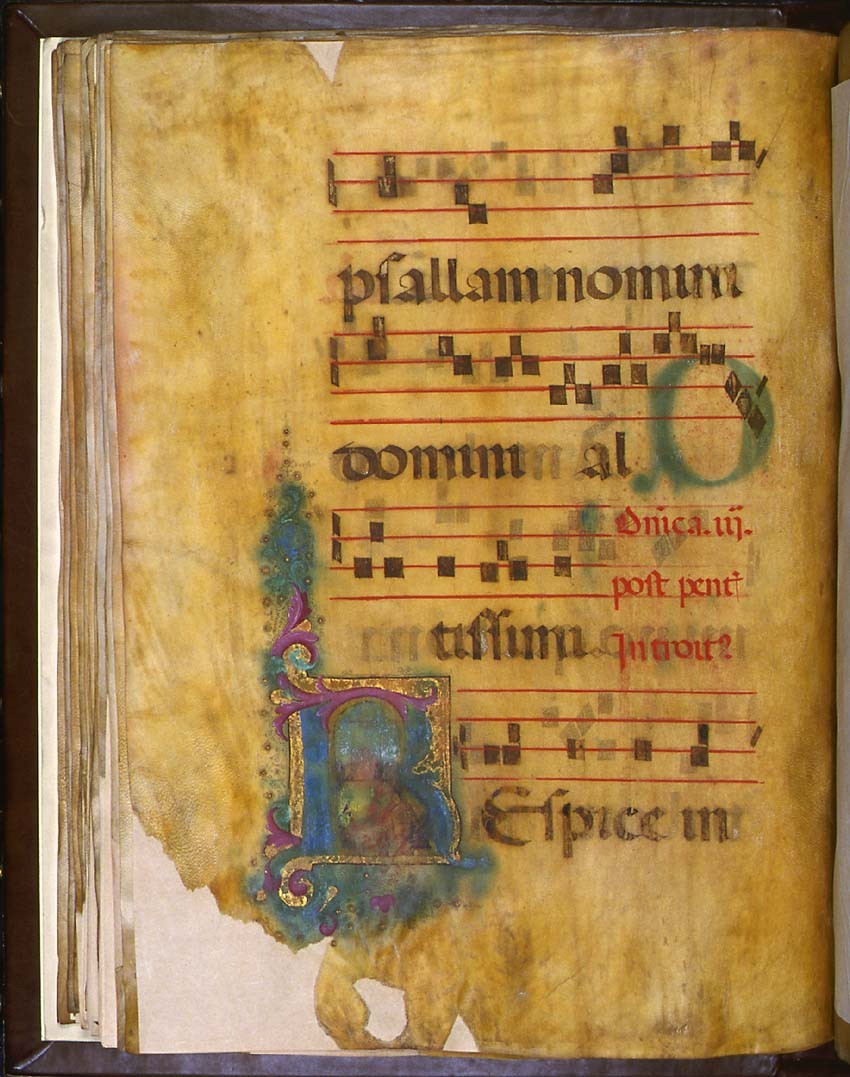 psallam nomini
domini al
tissimi
Dnica. iij.
post pent
Introit
REspice in